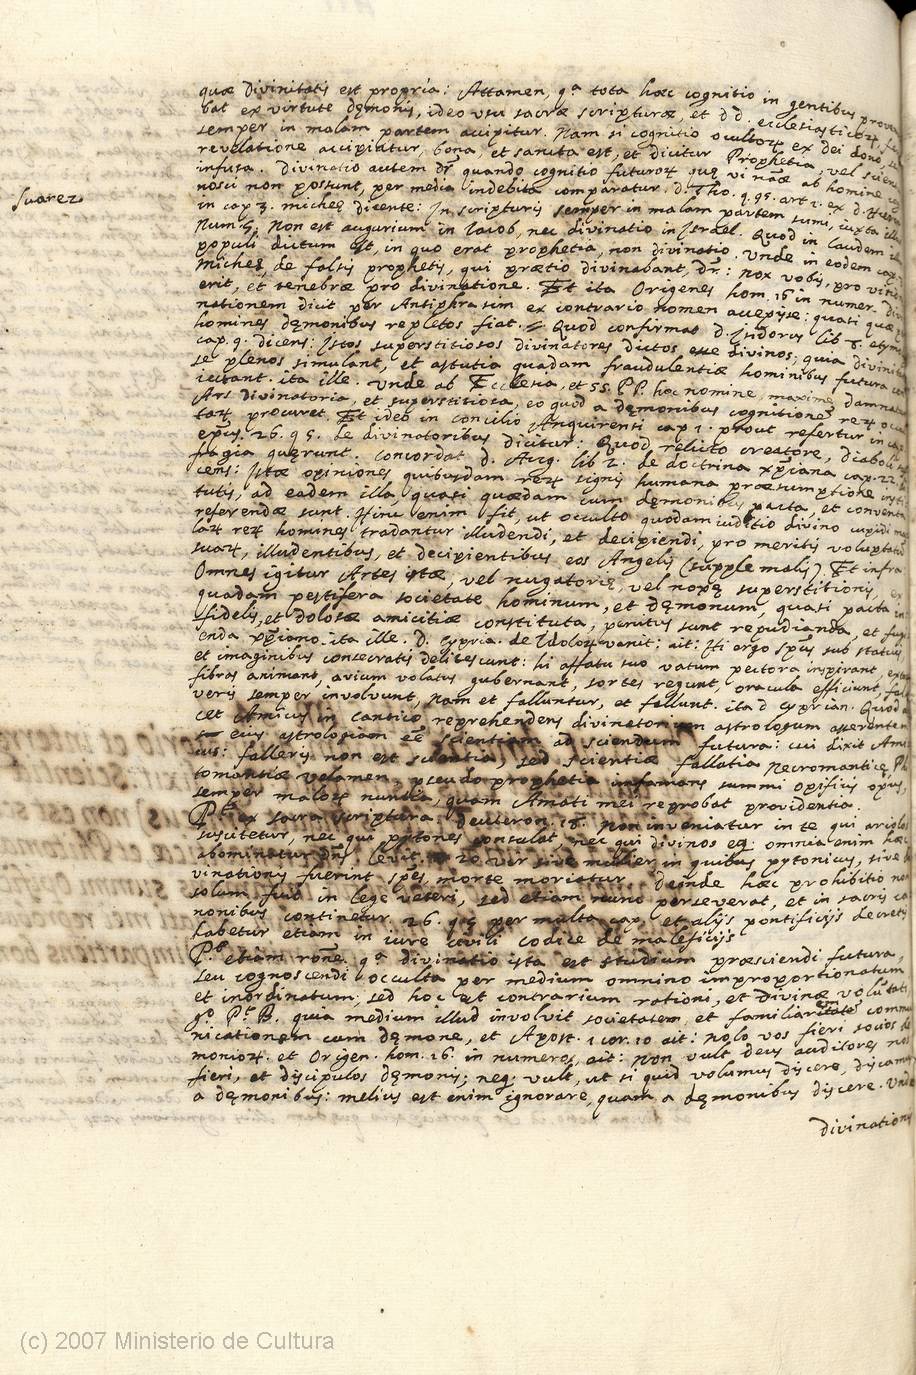 quæ divinitatis est propria: Attamen, qª tota hæc cognitio in gentibus
bat ex virtute dęmonis, ideo usu sacræ scripturæ, et DD. ecclesiasticoꝝ,
semper in malam partem accipitur. Nam si cognitio ocultoꝝ ex dei dono,
revelatione accipiatur, bona, et sancta est, et dicitur Prophetia, vel
infusa. Divinatio autem dr̃ quando cognitio futuroꝝ quę vi nãæ ab homine
nosci non possunt, per media indebita comparatur. D. Tho. q. 95. art 1. ex D.
Suarez
in cap 3. micheę dicente: In scripturis semper in malam partem sumi, iuxta
Num. Non est augurium in Iacob, nec divinatio in Israel. Quod in laudem
populi dictum est, in quo erat prophetia, non divinatio. Unde in eodem cap.
Micheę, de falsis prophetis, qui prætio divinabant, dr̃: nox vobis, pro
erit, et tenebræ pro divinatione. Et ita Origenes hom. 16 in numer.
nationem dicit per Antiphrasim ex contrario nomen accepisse: quasi quæ
homines dęmonibus repletos fiat. Quod confirmat D. Isidorus lib 8.
cap. 9. dicens: Istos superstitiosos divinatores dictos esse divinos: quia
se plenos simulant, et astutia quadam fraudulentiæ hominibus futura
iectant. ita ille. Unde ab Ecclesia, et SS. PP. hoc nomine, maxime
Ars divinatoria, et superstitiosa, eo quod a dęmonibus cognitionem reꝝ
taꝝ procuret. Et ideo in concilio Anquirensi cap 1. prout refertur in
26. q 5. de divinatoribus dicitur: Quod relicto creatore,
fragia quęrunt. Concordat D. Aug. lib 2. de doctrina xp̃iana cap. 22.
cens: Istæ opiniones quibusdam reꝝ signis humana præsumptione
tutis, ad eadem illa quasi quædam cum dęmonibus pacta, et
referendæ sunt. Hinc enim fit, ut occulto quodam iudicio divino cupidi
laꝝ reꝝ homines tradantur illudendi, et decipiendi, pro meritis
suaꝝ, illudentibus, et decipientibus eos Angelis (supple malis). Et infra
Omnes igitur Artes istæ, vel nugatorię, vel noxię superstitionis,
quadam pestifera societate hominum, et dęmonum, quasi pacta
fidelis, et dolosæ amicitiæ constituta, penitus sunt repudianda, et
enda xp̃iano. ita ille. D. Cypria. de Idoloꝝ vanit: ait: Hi ergo sp̃us sub statuis,
et imaginibus consecratis delitescunt: hi afflatu suo vatum pectora inspirant,
fibras animant, avium volatus gubernant, sortes regunt, oracula efficiunt,
veris semper involvunt, nam et falluntur, et fallunt. ita D Cyprian. Quod
cet Amicus in cantico reprehendens divinatorium astrologum
eius astrologiam eẽ scientiam ad sciendum futura: cui dixit
cus: falleris non est scientia, sed scientiæ fallatia Necromanticę,
tomantiæ velamen, pseudo prophetia infamans summi opificis opus,
semper maloꝝ nuntia, quam Amati mei reprobat providentia.
Pr̃. ex sacra scriptura. Deuteron. 18. Non inveniatur in te qui ariolos
suscitetur, nec qui pytones consulat, nec qui divinos eq: omnia enim hæc
abominatur dñs. Levit. 20. vir sive mulier, in quibus pytonicus, sive
vinationis fuerint sp̃us, morte moriatur. Deinde hæc prohibitio
solum fuit in lege veteri, sed etiam nunc perseverat, et in sacris
nonibus continetur 26. q 5. per multa cap. et alijs pontificijs
habetur etiam in iure civili codice de maleficijs
Pr̃. etiam rõne. qª divinatio ista est studium præsciendi futura,
seu cognoscendi occulta per medium omnino improportionatum
et inordinatum; sed hoc est contrarium rationi, et divinæ
Pr̃. B. quia medium illud involvit societatem, et familiaritatem
nicationem cum dęmone, et Apost. 1. cor. 10 ait: nolo vos fieri socios
monioꝝ. et Origen. hom. 16. in numeros, ait: Non vult deus auditores
fieri, et discipulos dęmonis; neq; vult, ut si quid volumus discere,
a dęmonibus: melius est enim ignorare, quam a dęmonibus discere. Unde
divinationis
(c) 2007 Ministerio de Cultura